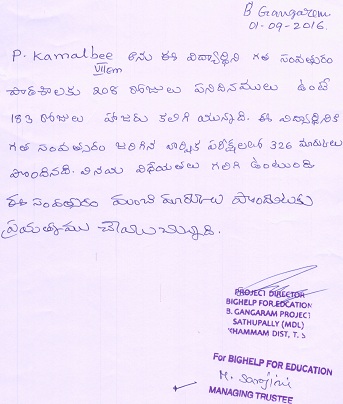 B Gangaram
01-09-2016.
P. Kamalbee అను ఈ విద్యార్థిని గత సంవత్సరం
VII Em
పాఠశాలకు 208 రోజులు పనిదినములు ఉంటే
183 రోజులు హాజరు కలిగి యున్నది. ఈ విద్యార్థినికి
గత సంవత్సరం జరిగిన వార్షిక పరీక్షలలో 326 మార్కులు
పొందినది. వినయ విధేయతలు కలిగి ఉంటుంది.
ఈ సంవత్సరం మంచి మార్కులు పొందుటకు
ప్రయత్నము చేయుచున్నది.
PROJECT DIRECTOR
BIGHELP FOR EDCATION
B. GANGARAM PROJECT
SATHUPALLY (MDL)
KHAMMAM DIST, T. S
For BIGHELP FOR EDUCATION
M. Sarojini
MANAGING TRUSTEE